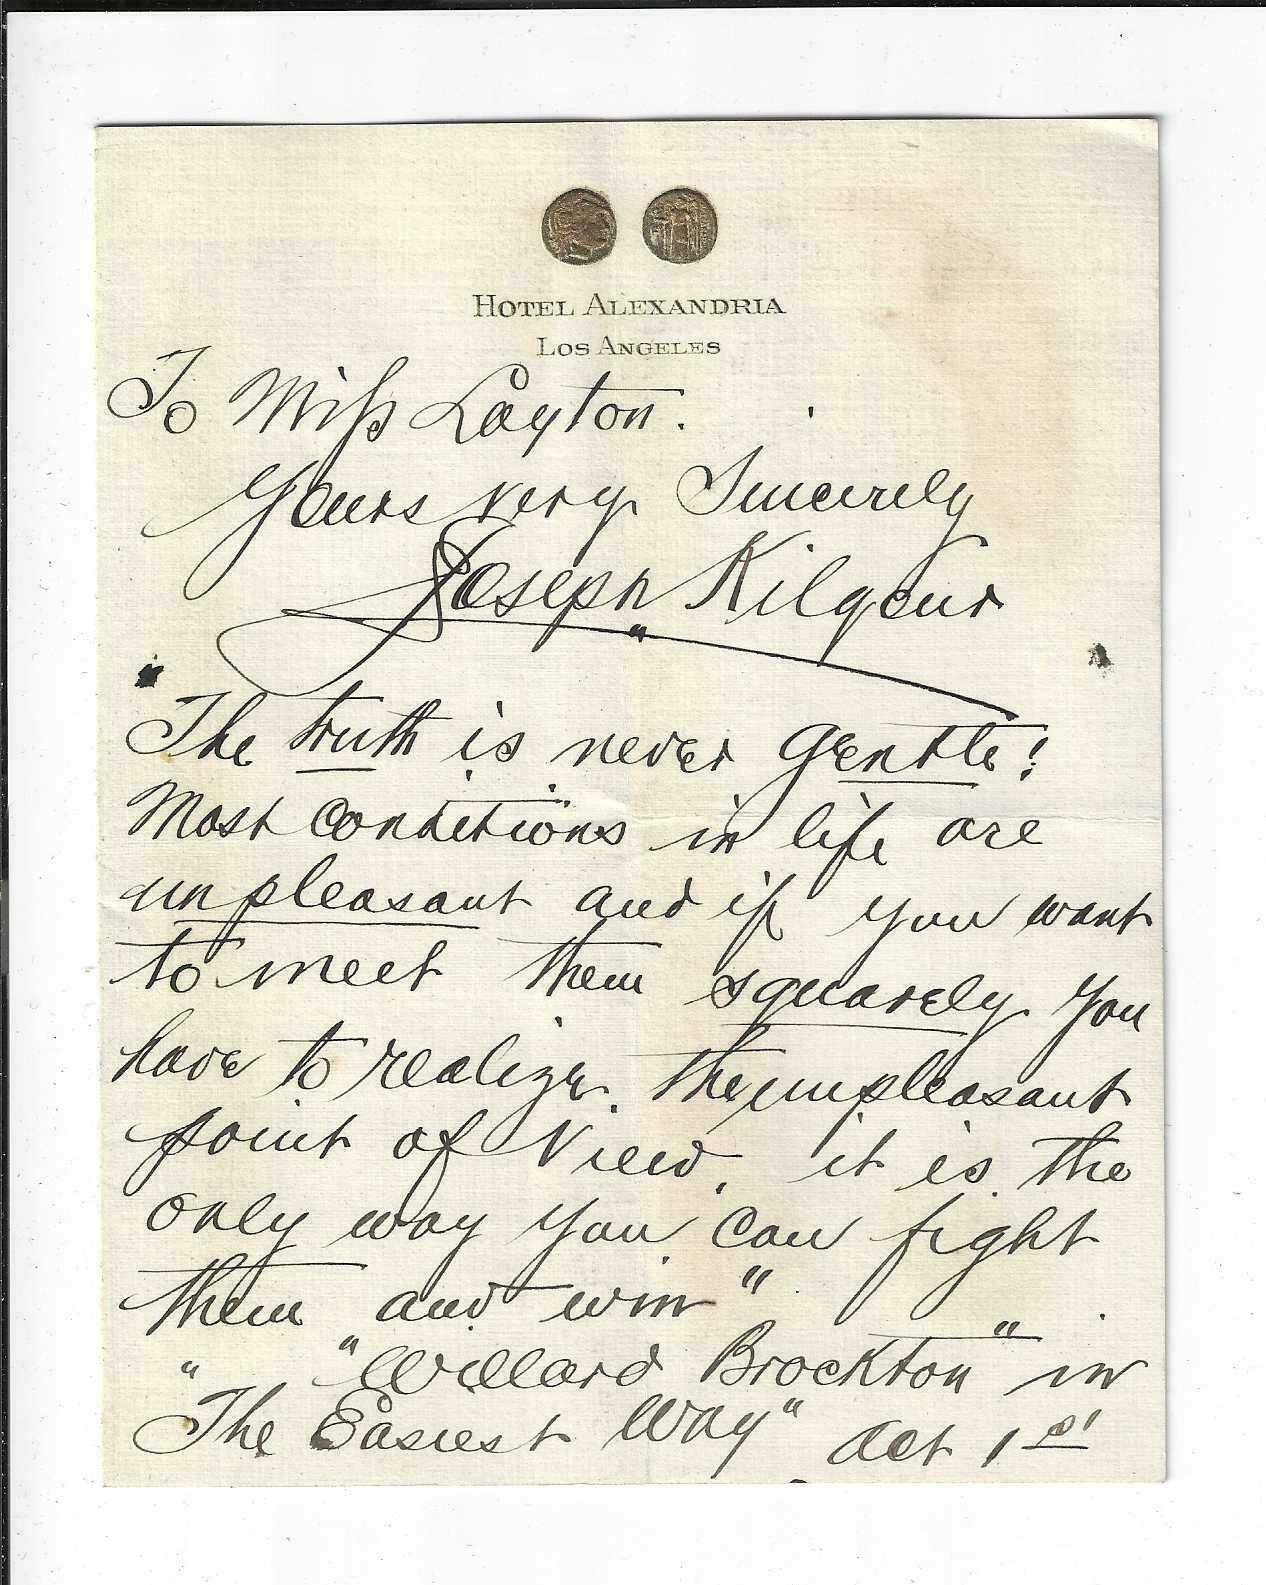 HOTEL ALEXANDRIA
LOS ANGELES
To Miss Layton.
Yours very Sincerely
Joseph Kilgour
"The truth is never gentle!
Most conditions in life are
unpleasant and if you want
to meet them squarely you
have to realize the unpleasant
point of view, it is the
only way you can fight
them and win"
"Willard Brockton" in
"The Easiest Way" Act 1st